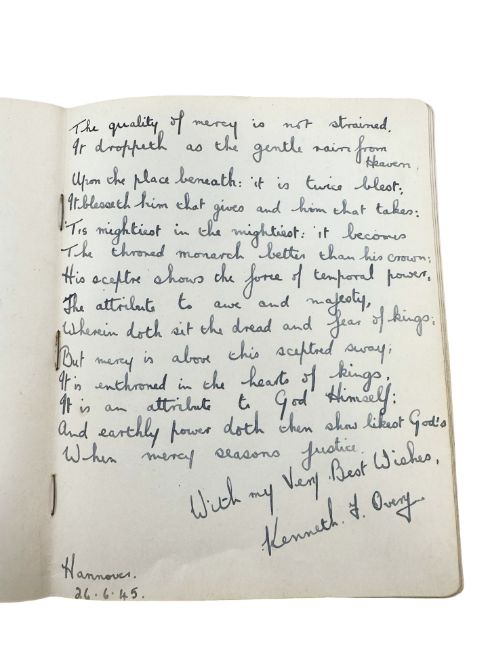 The quality of mercy is not strained.
It droppeth as the gentle rain from
Heaven.
Upon the place beneath: it is twice blest;
It blesseth him that gives and him that takes:
'Tis mightiest in the mightiest: it becomes
The throned monarch better than his crown;
His sceptre shows the force of temporal power,
The attribute to awe and majesty,
Wherein doth sit the dread and fear of kings;
But mercy is above this sceptred sway;
It is enthroned in the hearts of kings,
It is an attribute to God Himself;
And earthly power doth then show likest God's
When mercy seasons Justice.
With my Very Best Wishes,
Kenneth. F. Overy
Hannover.
26.6.45.